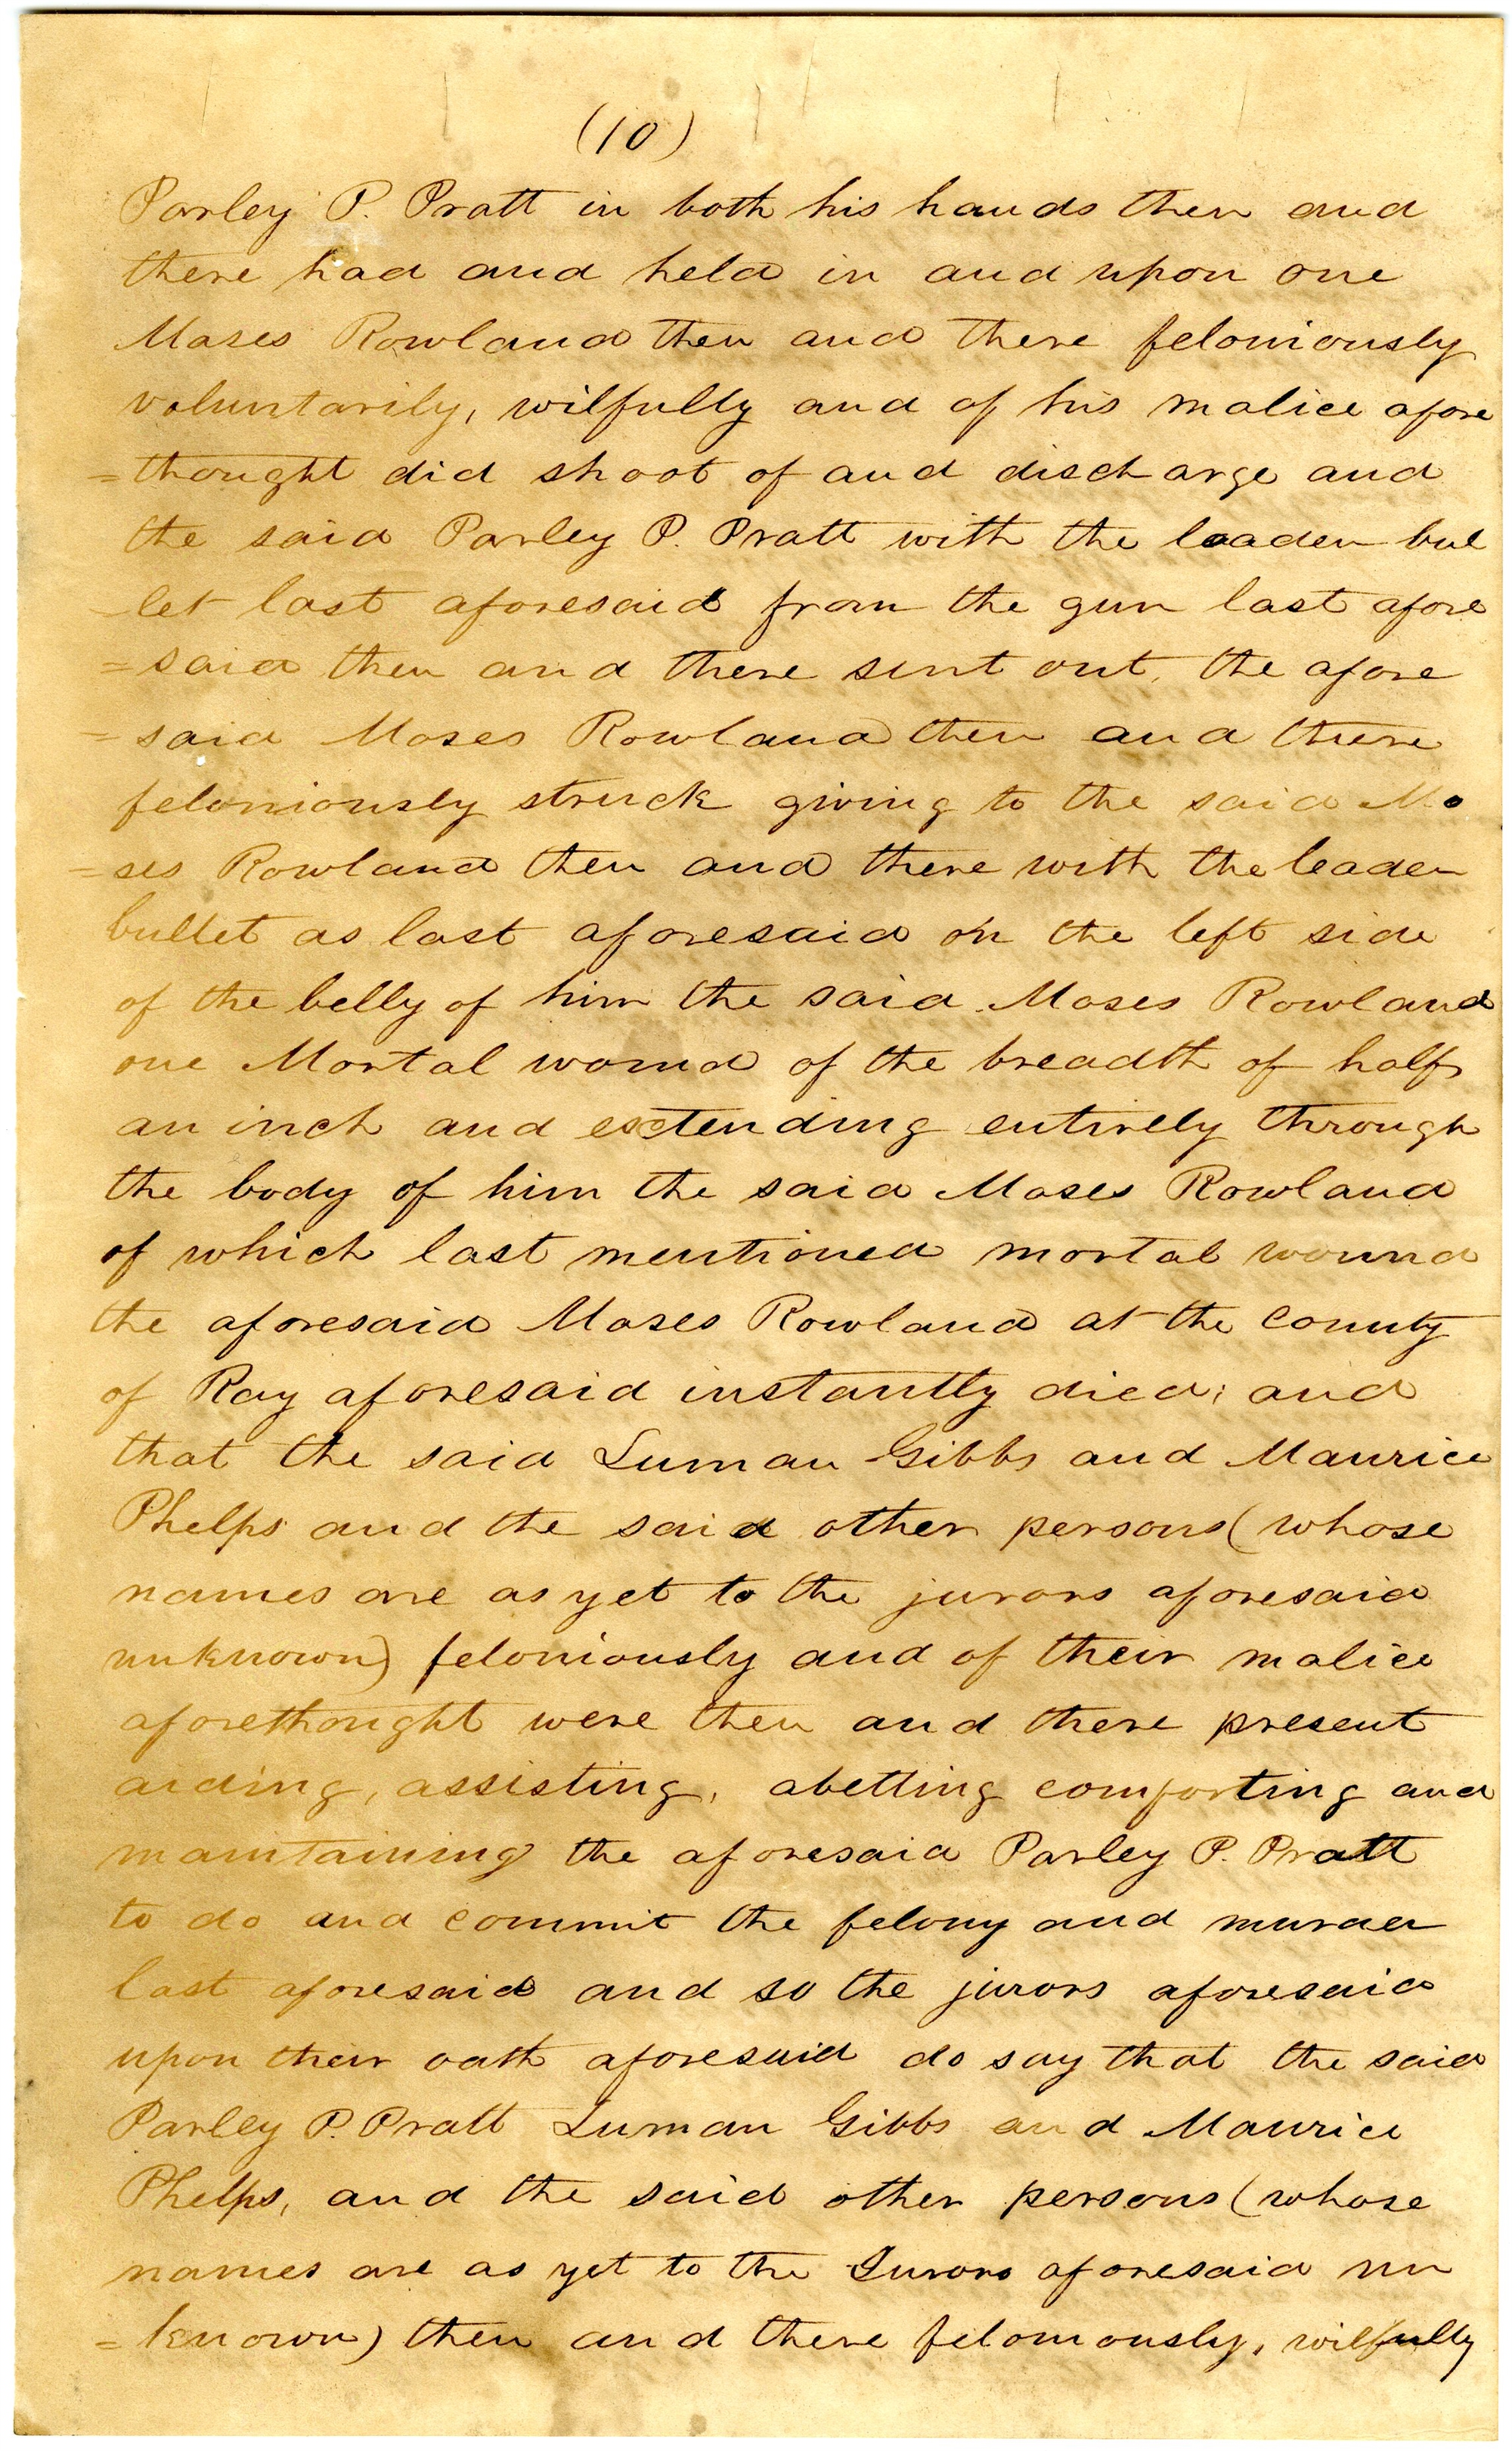 (10)
Parley P. Pratt in both his hands then and
there had and held in and upon one
Moses Rowland then and there feloniously
voluntarily, wilfully and of his malice afore
=thought did shoot of and discharge and
the said Parley P. Pratt with the leaden bul
-let last aforesaid from the gun last afore
=said then and there sent out, the afore
=said Moses Rowland then and there
feloniously struck giving to the said Mo
=ses Rowland then and there with the leaden
bullet as last aforesaid on the left side
of the belly of him the said Moses Rowland
one Mortal wound of the breadth of half
an inch and extending entirely through
the body of him the said Moses Rowland
of which last mentioned mortal wound
the aforesaid Moses Rowland at the County
of Ray aforesaid instantly died; and
that the said Luman Gibbs and Maurice
Phelps and the said other persons (whose
names are as yet to the jurors aforesaid
unknown) feloniously and of their malice
aforethought were then and there present
aiding, assisting, abetting comforting and
maintaining the aforesaid Parley P. Pratt
to do and commit the felony and murder
last aforesaid and so the jurors aforesaid
upon their oath aforesaid do say that the said
Parley P. Pratt Luman Gibbs and Maurice
Phelps, and the said other persons (whose
names are as yet to the Jurors aforesaid un
=known) then and there feloniously, wilfully